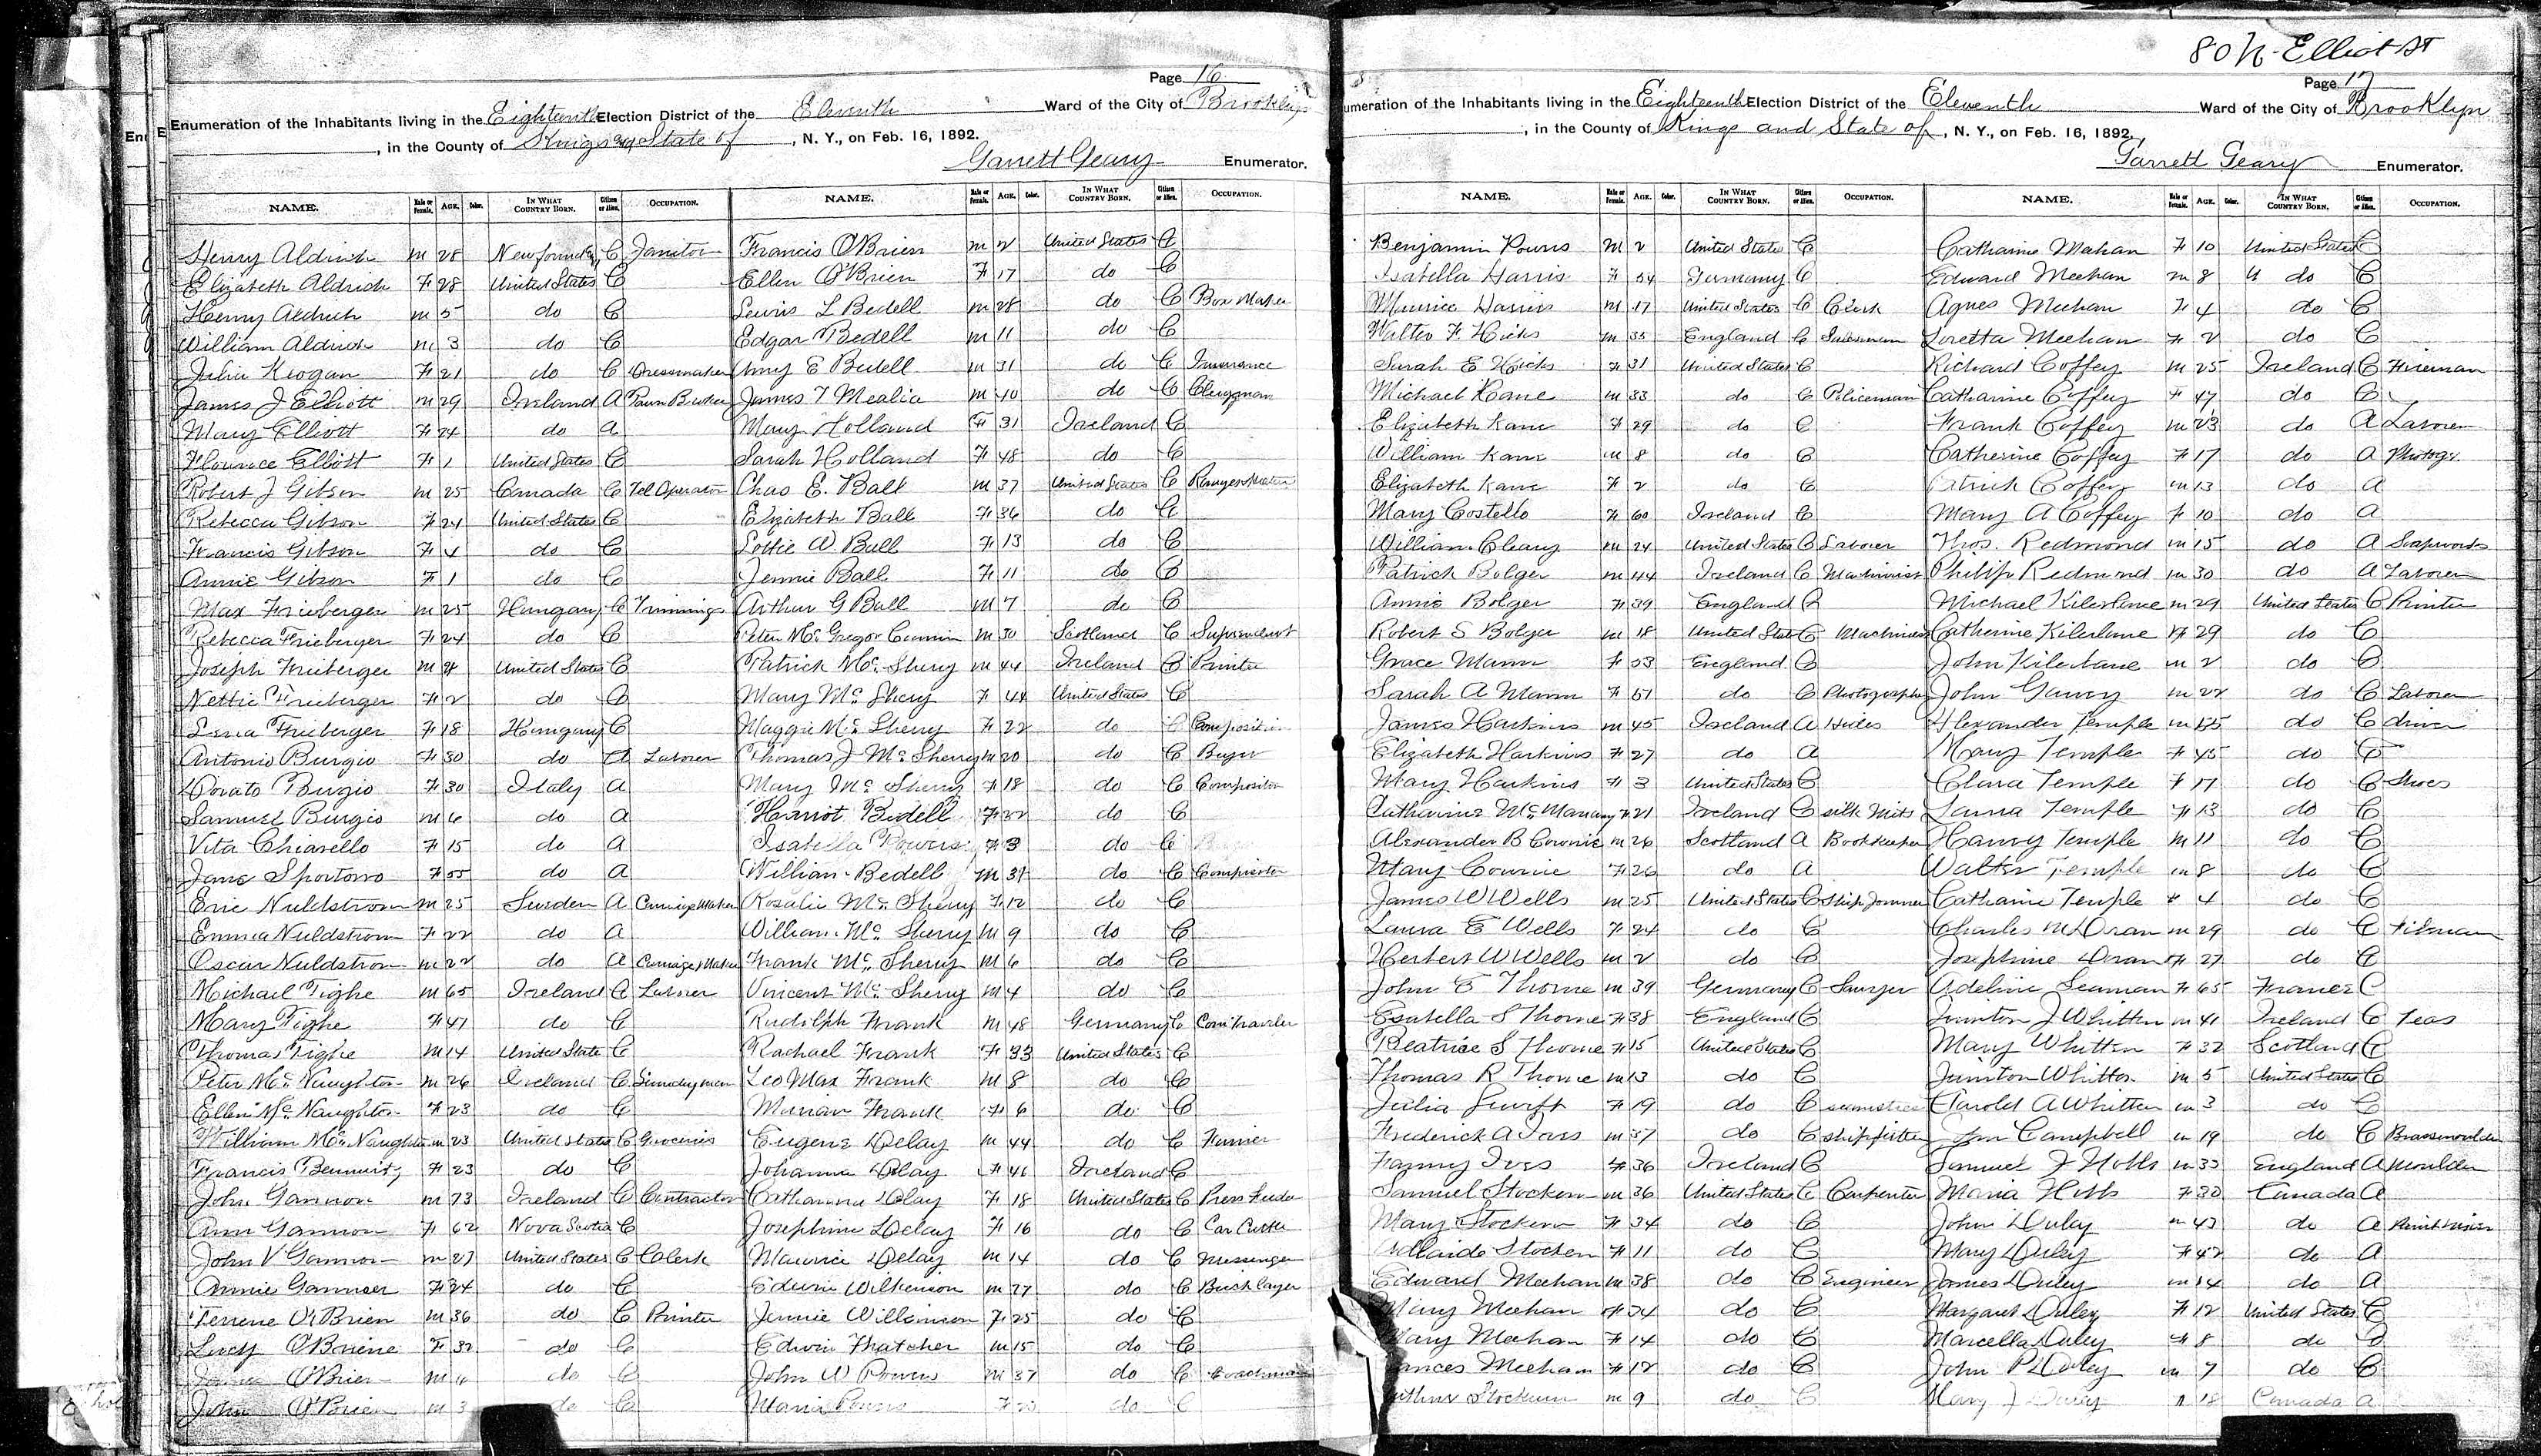 Page 16
Enumeration of the Inhabitants living in the Eighteenth Election District of the Eleventh Ward of the City of Brooklyn
, in the County of Kings and State of , N. Y., on Feb. 16, 1892.
Garrett Geary Enumerator.
NAME. Male or Female. AGE. Color. IN WHAT COUNTRY BORN. Citizen or Alien. OCCUPATION.
Henry Aldrich m 28 C Janitor
Elizabeth Aldrich F 28 United States C
Henry Aldrich m 5 do C
William Aldrich m 3 do C
Julia Keogan F 21 do C Dressmaker
James J Elliott m 29 Ireland A Pawn Broker
Mary Elliott F 24 do A
Florence Elliott F 1 United States C
Robert J Gibson m 25 Canada C Tel Operator
Rebecca Gibson F 24 United States C
Francis Gibson F 4 do C
Annie Gibson F 1 do C
Max Frieberger m 25 Hungary C Trimmings
Rebecca Frieberger F 24 do C
Joseph Frieberger m 4 United States C
Nettie Frieberger F 2 do C
Lena Frieberger F 18 Hungary C
Antonio Burgio F 30 do A Laborer
Burgio F 30 Italy A
Samuel Burgio m 6 do A
Vita Chiarello F 15 do A
Jane F 55 do A
Eric Nuldstrom m 25 Sweden A Carriage Maker
Emma Nuldstrom F 22 do A
Oscar Nuldstrom m 22 do A Carriage Maker
Michael Tighe m 65 Ireland C Laborer
Mary Tighe F 47 do C
Thomas Tighe m 14 United State C
Peter McNaughton m 26 Ireland C
Ellen McNaughton F 23 do C
William McNaughton m 23 United States C Groceries
Francis F 23 do C
John Gannon m 73 Ireland C Contractor
Ann Gannon F 62 Nova Scotia C
John V Gannon m 27 United States C Clerk
Annie Gannon F 24 do C
Terrene O'Brien m 36 do C Printer
Lucy O'Briene F 32 do C
O'Brien m do C
John O'Brien m 3 do C
NAME. Male or Female. AGE. Color. IN WHAT COUNTRY BORN. Citizen or Alien. OCCUPATION.
Francis O'Brien m 2 United States C
Ellen O'Brien F 17 do C
Lewis L Bedell m 28 do C Box Maker
Edgar Bedell m 11 do C
Amy E Bedell m 31 do C Insurance
James T Mealia m 40 do C Clergyman
Mary Holland F 31 Ireland C
Sarah Holland F 48 do C
Chas E. Ball m 37 United States C
Elizabeth Ball F 36 do C
Lottie W Ball F 13 do C
Jennie Ball F 11 do C
Arthur G Ball m 7 do C
Peter McGregor m 30 Scotland C
Patrick McSherry m 44 Ireland C Printer
Mary McSherry F 44 United States C
Maggie McSherry F 22 do C
Thomas J McSherry m 20 do C
Mary McSherry F 18 do C Compositor
Harriot Bedell F 22 do C
Isabella Powers F 3 do C
William Bedell m 31 do C Compositor
Rosalie McSherry F 12 do C
William McSherry m 9 do C
Frank McSherry m 6 do C
Vincent McSherry m 4 do C
Rudolph Frank m 48 Germany C Com Traveler
Rachael Frank F 33 United States C
Leo Max Frank m 8 do C
Marian Frank F 6 do C
Eugene Delay m 44 do C Furrier
Johanna Delay F 46 Ireland C
Catharina Delay F 18 United States C Press Feeder
Josephine Delay F 16 do C
Maurice Delay m 14 do C Messenger
Edwin Wilkenson m 27 do C Brick layer
Jennie Wilkinson F 25 do C
Edwin Thatcher m 15 do C
John W Powers m 37 do C Coachman
Maria Powers F do C
80 N. Elliot St
Page 17
umeration of the Inhabitants living in the Eighteenth Election District of the Eleventh Ward of the City of Brooklyn
, in the County of Kings and State of , N. Y., on Feb. 16, 1892.
Garrett Geary Enumerator.
NAME. Male or Female. AGE. Color. IN WHAT COUNTRY BORN. Citizen or Alien. OCCUPATION.
Benjamin Powers m 2 United States C
Isabella Harris F 54 Germany C
Maurice Harris m 17 United States C Clerk
Walter F. Hicks m 35 England C Salesman
Sarah E Hicks F 31 United States C
Michael Kane m 33 do C Policeman
Elizabeth Kane F 29 do C
William Kane m 8 do C
Elizabeth Kane F 2 do C
Mary Costello F 60 Ireland C
William Cleary m 24 United States C Laborer
Patrick Bolger m 44 Ireland C Machinist
Annie Bolger F 39 England C
Robert S Bolger m 18 United State C Machinist
Grace Mann F 53 England C
Sarah A Mann F 51 do C Photographer
James Harkins m 45 Ireland A Hides
Elizabeth Harkins F 27 do A
Mary Harkins F 3 United States C
Catharine F 21 Ireland C silk Mits
Alexander B Cownie m 26 Scotland A Bookkeeper
Mary Cownie F 26 do A
James W Wells m 25 United States C Ship Joiner
Laura E Wells F 24 do C
Herbert W Wells m 2 do C
John E Thorne m 39 Germany C Lawyer
Esatella S Thorne F 38 England C
Beatrice S Thorne F 15 United States C
Thomas R Thorne m 13 do C
Julia Swift F 19 do C seamstress
Frederick A Ives m 37 do C shipfitter
Fanny Ives F 36 Ireland C
Samuel Stocken m 36 United States C Carpenter
Mary Stocken F 34 do C
Adlaide Stocken F 11 do C
Edward Meehan m 38 do C Engineer
Mary Meehan F 34 do C
Mary Meehan F 14 do C
ances Meehan F 12 do C
Stocken m 9 do C
NAME. Male or Female. AGE. Color. IN WHAT COUNTRY BORN. Citizen or Alien. OCCUPATION.
Catharine Mahan F 10 United States C
Edward Meehan m 8 do C
Agnes Meehan F 4 do C
Loretta Meehan F 2 do C
Richard Coffey m 25 Ireland C Fireman
Catharine Coffey F 47 do C
Frank Coffey m 23 do A Laborer
Catherine Coffey F 17 do A Photogr.
Patrick Coffey m 13 do A
Mary A Coffey F 10 do A
Thos. Redmond m 15 do A Soapworks
Philip Redmond m 30 do A Laborer
Michael Kilerlane m 29 United States C Printer
Catherine Kilerlane F 29 do C
John Kilerlane m 2 do C
John m 22 do C Laborer
Alexander Temple m do C driver
Mary Temple F 45 do C
Clara Temple F 17 do C Shoes
Laura Temple F 13 do C
Harry Temple m 11 do C
Walter Temple m 8 do C
Catharine Temple F 4 do C
Charles M Doran m 29 do C
Josephine Doran F 27 do C
Adeline Seaman F 65 France C
J Whitten m 41 Ireland C Teas
Mary Whitten F 32 Scotland C
Whitten m 5 United States C
Harold A Whitten m 3 do C
Campbell m 19 do C Brassmoulder
Samuel J Hobbs m 33 England A Moulder
Maria Hobbs F 30 Canada A
John Duley m 43 do A
Mary Duley F 42 do A
James Duley m 14 do A
Margaret Duley F 12 United States C
Marcella Duley F 8 do C
John P Duley m 7 do C
Mary J Duley F 18 Canada A